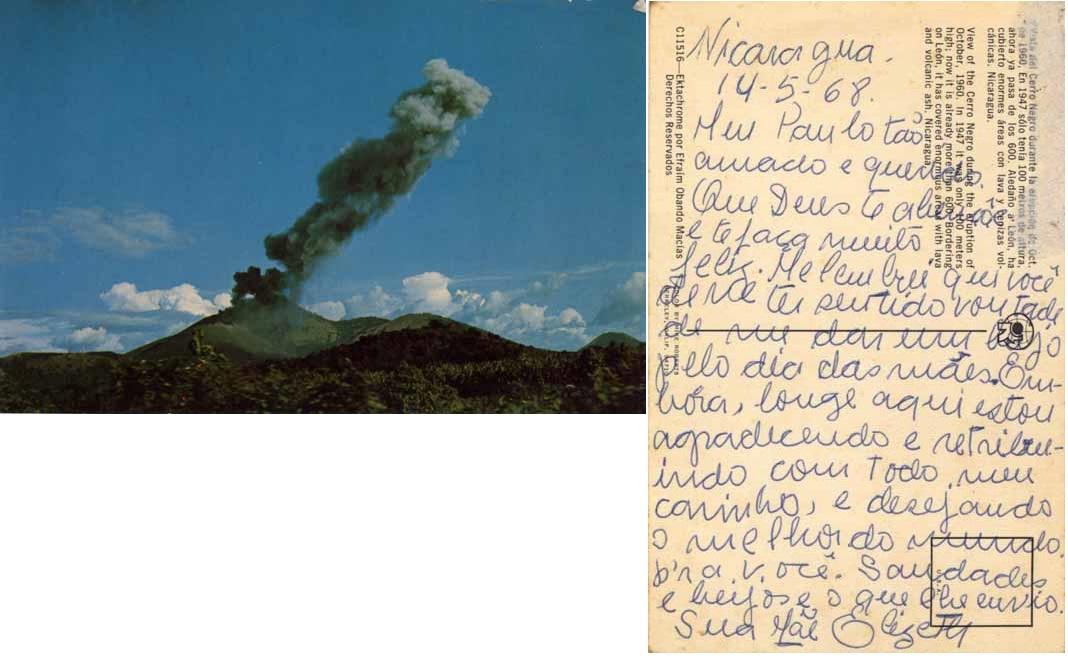 Nicaragua.
14-5-68.
Meu Paulo tão
amado e querido.
Que Deus te abençõe
e te faça muito
feliz. Me lembrei que você
deve ter sentido vontade
de me dar um beijo
pelo dia das mães. Em-
bóra, longe aqui estou
agradecendo e retribu-
indo com todo meu
carinho, e desejando
o melhor do mundo
p'ra você. Saudades
e beijos e o que lhe envio.
Sua Mãe Elizeth
Vista del Cerro Negro durante la erupción de Oct.
de 1960. En 1947 sólo tenía 100 metros de altura
ahora ya pasa de los 600. Aledaño a León, ha
cubierto enormes áreas con lava y cenizas vol-
cánicas. Nicaragua.
View of the Cerro Negro during the eruption of
October, 1960. In 1947 it was only 100 meters
high; now it is already more than 600. Bordering
on León, it has covered enormous areas with lava
and volcanic ash. Nicaragua.
C11516—Ektachrome por Efraim Obando Macías
Derechos Reservados